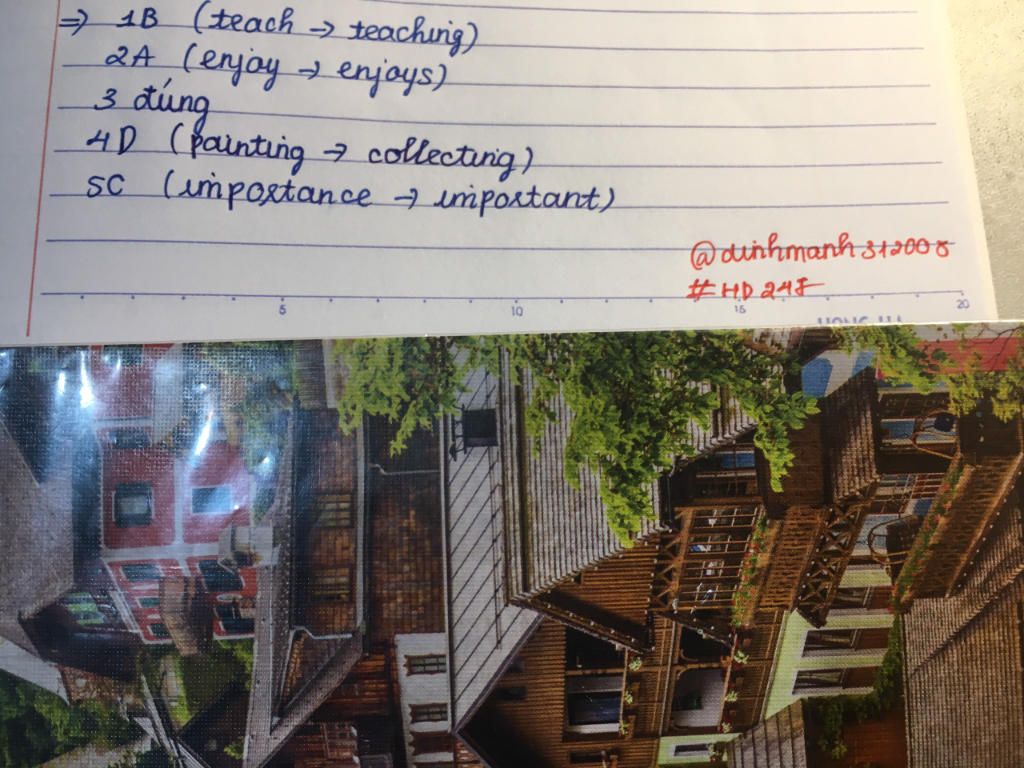 ⇒ 1B (teach → teaching)
2A (enjoy → enjoys)
3 đúng
4D (painting → collecting)
5C (importance → important)
@dinhmanh312008
#HD247
5 10 15 20